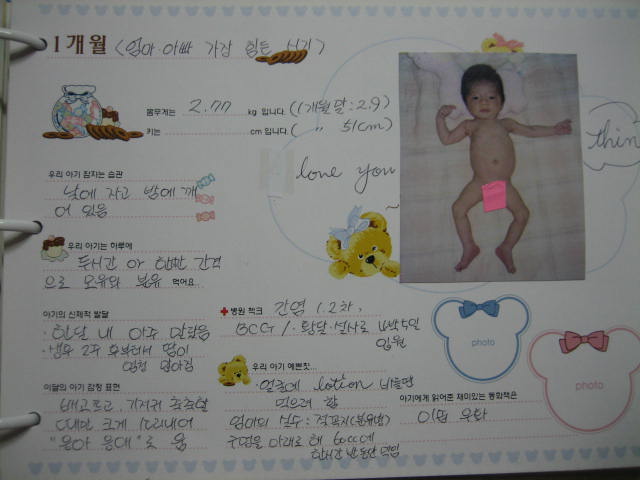 1개월 (엄마·아빠 가장 힘든 시기)
몸무게는 2.77 kg 입니다. (1개월 말: 2.9)
키는 cm 입니다. ( " 51cm)
thin
love you ~
우리 아기 잠자는 습관
낮에 자고 밤에 깨
어 있음
우리 아기는 하루에
두시간 or 한시간 간격
으로 모유와 분유 먹어요..
아기의 신체적 발달
· 한달 내 아주 말랐음
· 생후 2주 후부터 땀이
엄청 많아짐
이달의 아기 감정 표현
배고프고, 기저귀 축축할
때만 크게 소리내어
"응아 응애"로 움
병원 체크 간염 1.2차,
BCG / · 황달·설사로 4박5일
입원
우리 아기 예쁜짓...
· 얼굴에 lotion 바를땐
먹으려 함
엄마의 실수 : 젖꼭지(분유병)
구멍을 아래로 해 60cc에
한시간 반동안 먹임
photo
photo
아기에게 읽어준 재미있는 동화책은
이솝 우화